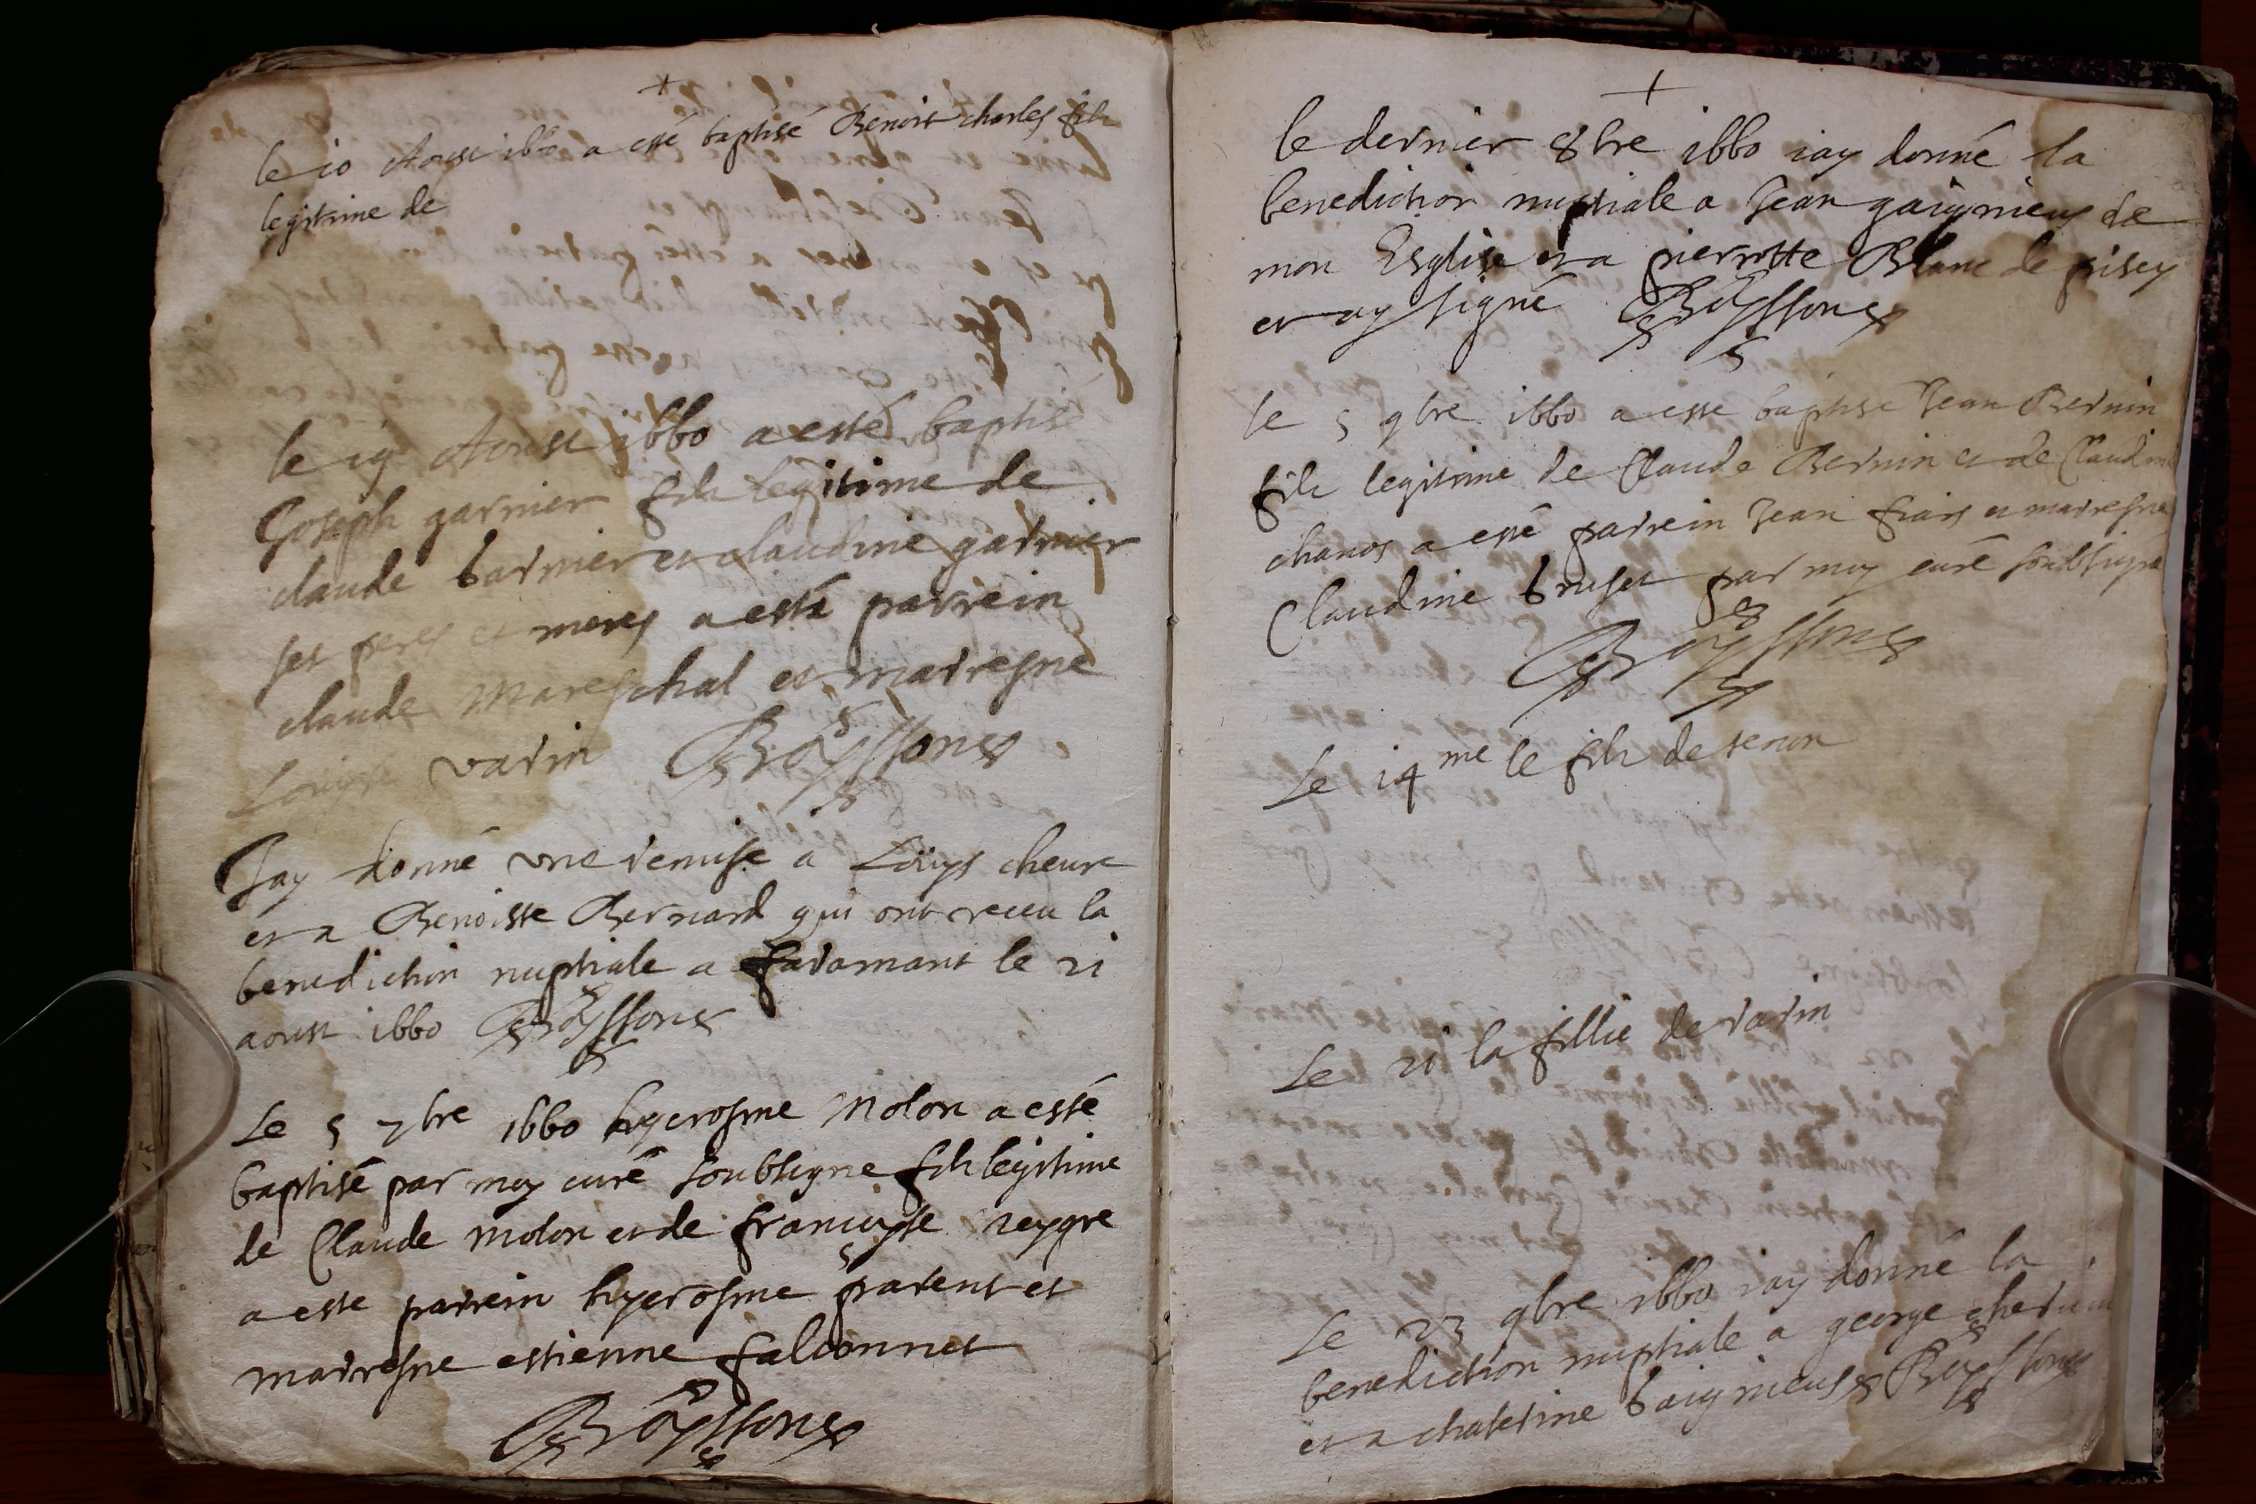 le 10 Aoust 1660 a esté baptisé Benoit charles fils
legitime de
le 19 Aoust 1660 a esté baptisé
Joseph garnier fils legitime de
claude barnier et claudine garnier
ses peres et meres a esté parrein
claude mareschal et marresne
Louyse varin Boyssone
Jay donné une remise a Loüys cheure
et a Benoiste Bernard qui ont receu la
benediction nuptiale a faramans le 21
aoust 1660 Boyssone
Le 5 7bre 1660 hyerosme Molon a esté
baptisé par moy curé soubsigne fils legitime
de Claude molon et de francoyse reygre
a este parrein hyerosme parent et
marresne estienne falconnet
Boyssone
+
le dernier 8bre 1660 iay donné la
benediction nuptiale a Jean gaignieus de
mon Esglise et a pierrotte Blanc de prisey
et ay signé Boyssone
le 5 9bre 1660 a esse baptisé Jean Bernin
fils legitime de Claude Bernin et de Claudine
chanos a esté parrein Jean fiars et marresne
Claudine bruset par moy curé soubsigné
Boyssone
Le 14me le fils de tenon
Le 21 la fillie de varin
Le 23 9bre 1660 iay donné la
benediction nuptiale a george
et a chaterine baignieus Boyssone